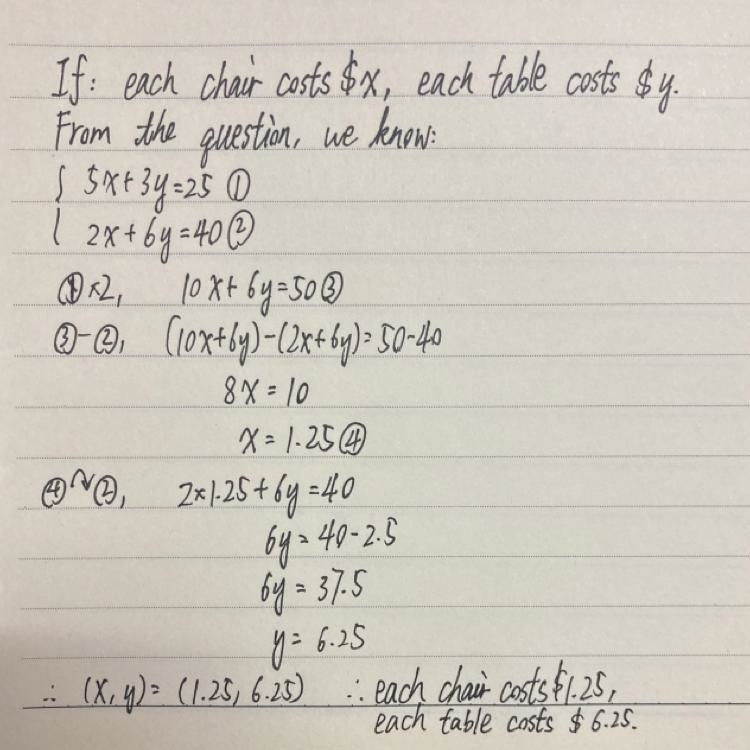 If: each chair costs $x, each table costs $y.
From the question, we know:
{ 5x+3y=25 ①
2x+6y=40 ②
①×2, 10x+6y=50 ③
③-②, (10x+6y)-(2x+6y)=50-40
8x=10
x=1.25 ④
④↷②, 2×1.25+6y=40
6y=40-2.5
6y=37.5
y=6.25
∴ (x,y)=(1.25, 6.25) ∴ each chair costs $1.25,
each table costs $6.25.